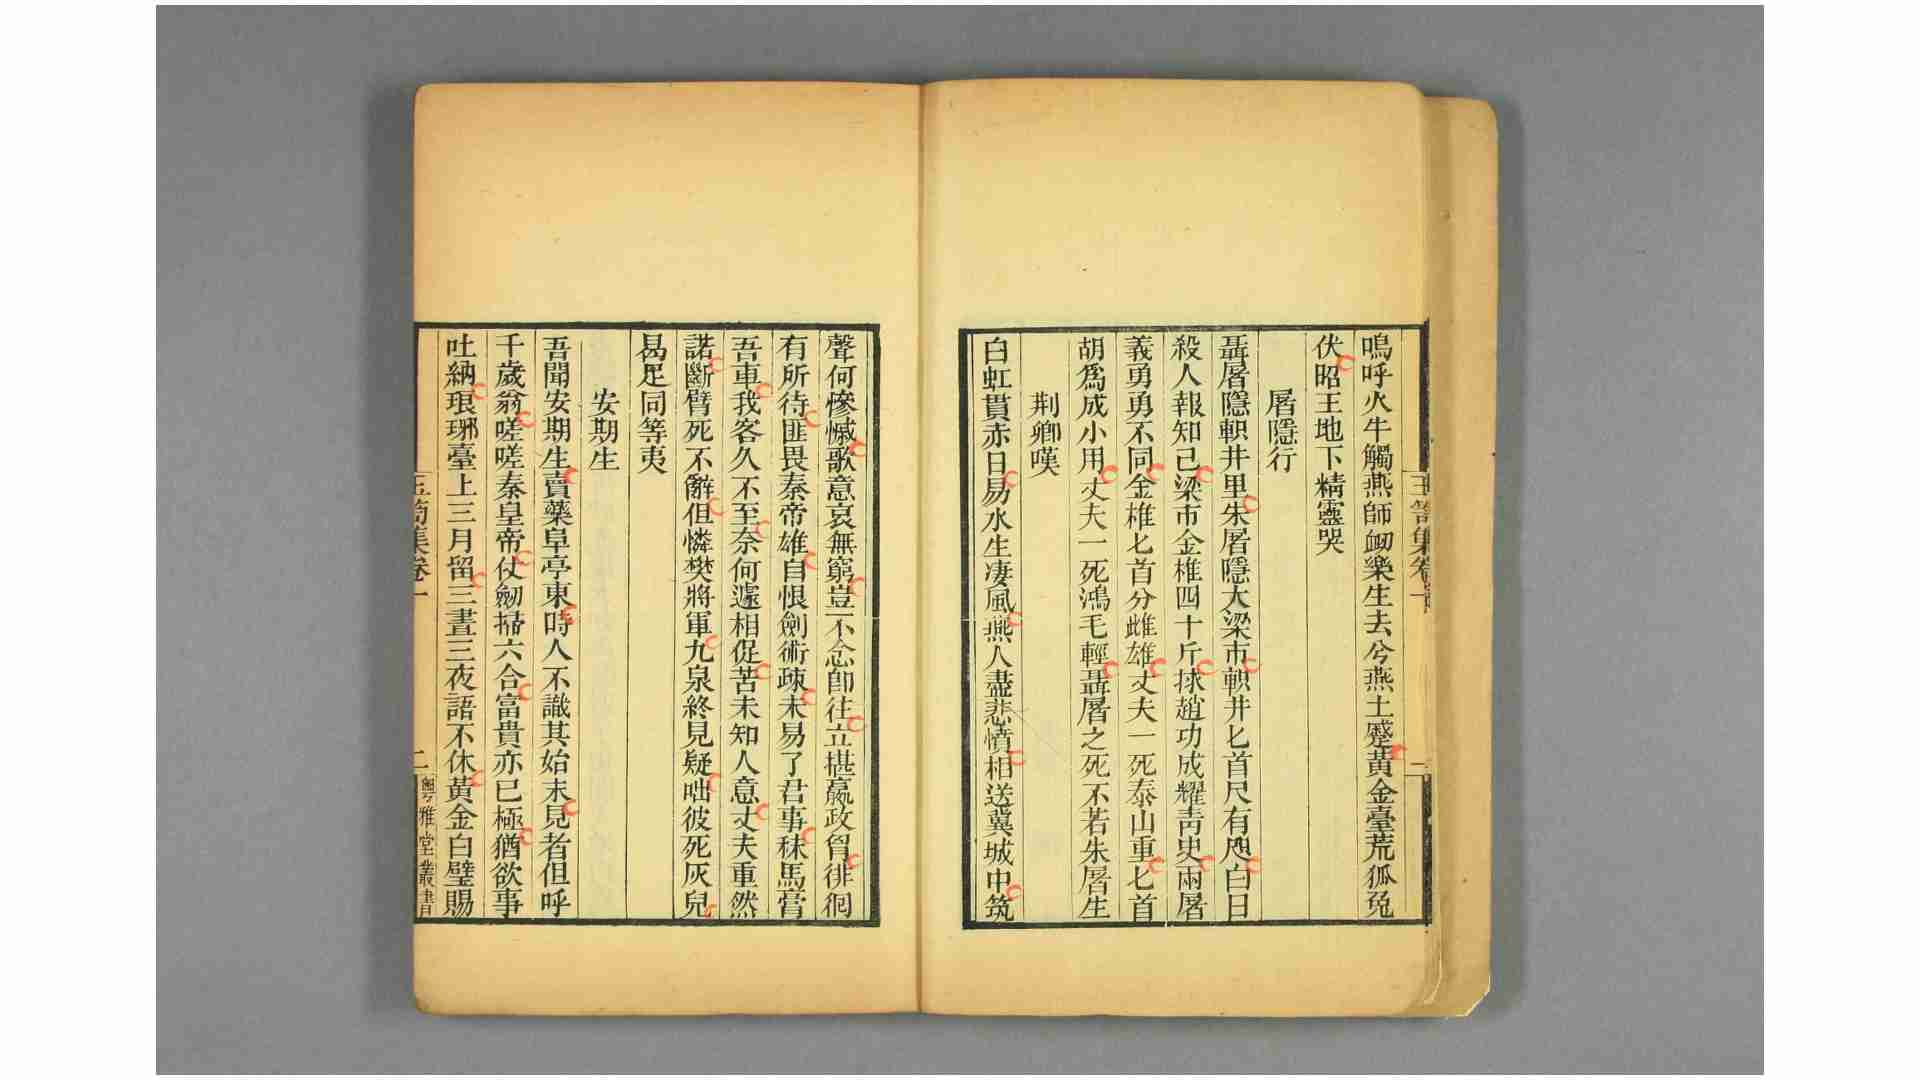 嗚呼火牛觸燕師衂樂生去兮燕土蹙黃金臺荒狐兔
伏昭王地下精靈哭
屠隱行
聶屠隱軹井里朱屠隱大梁市軹井匕首尺有咫白日
殺人報知己梁市金椎四十斤捄趙功成耀靑史兩屠
義勇勇不同金椎匕首分雌雄丈夫一死泰山重匕首
胡爲成小用丈夫一死鴻毛輕聶屠之死不若朱屠生
荆卿嘆
白虹貫赤日易水生凄風燕人盡悲憤相送冀城中筑
聲何慘慽歌意哀無窮豈不念卽往立椹嬴政胷徘徊
有所待匪畏秦帝雄自恨劍術疎未易了君事秣馬膏
吾車我客久不至奈何遽相促苦未知人意丈夫重然
諾斷臂死不辭但憐樊將軍九泉終見疑咄彼死灰兒
曷足同等夷
安期生
吾聞安期生賣藥阜亭東時人不識其始末見者但呼
千歲翁嗟嗟秦皇帝仗劒掃六合富貴亦已極猶欲事
吐納琅琊臺上三月留三晝三夜語不休黃金白璧賜
玉笥集卷一
二
粵雅堂叢書